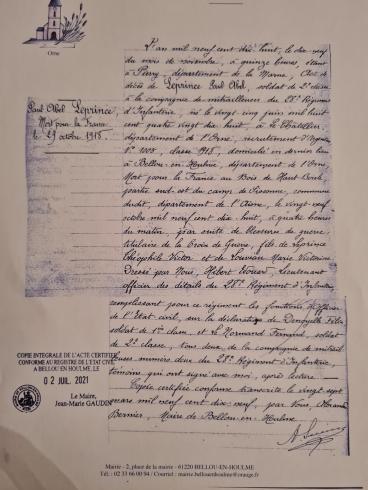 Orne
L'an mil neuf cent dix-huit, le dix-neuf
du mois de novembre, à quinze heures, étant
à Pierry, département de la Marne, Acte de
décès de Leprince Paul Abel, soldat de 2e classe
à la compagnie de mitrailleuses du 28e Régiment
d'Infanterie, né le vingt cinq juin mil huit
cent quatre vingt dix huit, à le Châtellier,
département de l'Orne, recrutement d'
No 1008, classe 1918, domicilié en dernier lieu
à Bellou-en-Houlme, département de l'Orne,
Mort pour la France au Bois de Haut
partie sud est du camp de Sissonne, commune
dudit, département de l'Aisne, le vingt-neuf
octobre mil neuf cent dix huit, à quatre heures
du matin, par suite de blessures de guerre
titulaire de la Croix de Guerre, fils de Leprince
Théophile Victor et de Louvain Marie Victorine
Dressé par Nous, Hébert lieutenant
officier des détails du 28e Régiment d'Infanterie
remplissant pour ce régiment les fonctions d'officier
de l'Etat civil, sur la déclaration de
soldat de 1re classe, et Le Normand Fernand, soldat
de 2e classe, tous deux, de la compagnie de mitrail-
leuses numéro deux du 28e Régiment d'Infanterie,
témoins, qui ont signé avec moi, après lecture.
Copie certifiée conforme, transcrite le vingt sept
mars mil neuf cent dix-neuf, par Nous,
Bernier, Maire de Bellou-en-Houlme.
Paul Abel Leprince
Mort pour la France
le 29 octobre 1918
COPIE INTEGRALE DE L'ACTE CERTIFIEE
CONFORME AU REGISTRE DE L'ETAT CIVIL
A BELLOU EN HOULME, LE
02 JUIL. 2021
Le Maire,
Jean-Marie GAUDIN
Mairie - 2, place de la mairie - 61220 BELLOU-EN-HOULME
Tél. : 02 33 66 00 94 / Courriel : mairie.bellouenhoulme@orange.fr